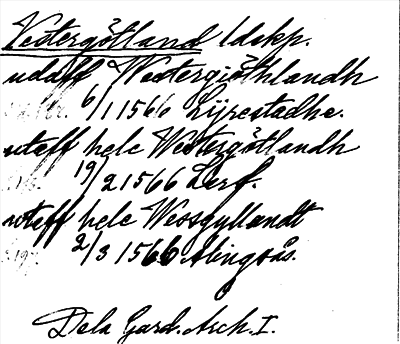 Vestergötland ldskp.
udaff Westergiöthlandh
6/1 1566 Lijrestadhe.
uteff hele Westergötlandh
19/2 1566 Lerf.
uteff hele Wessgyllandt
2/3 1566 Alingsås.
Dela Gard. Arch. I.